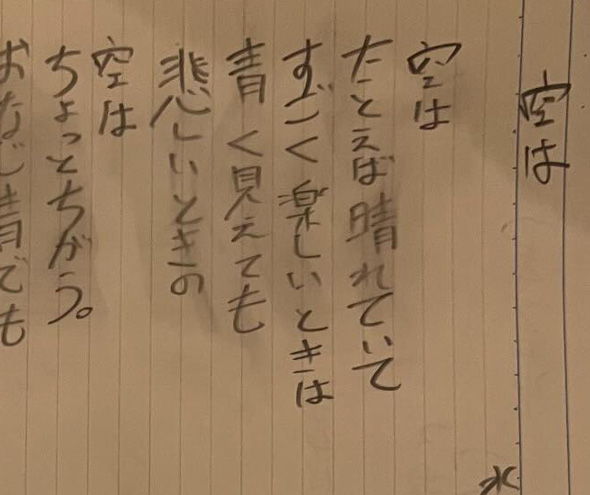 空は
水
空は
たとえば晴れていて
すごく楽しいときは
青く見えても
悲しいときの
空は
ちょっとちがう。
おなじ青でも